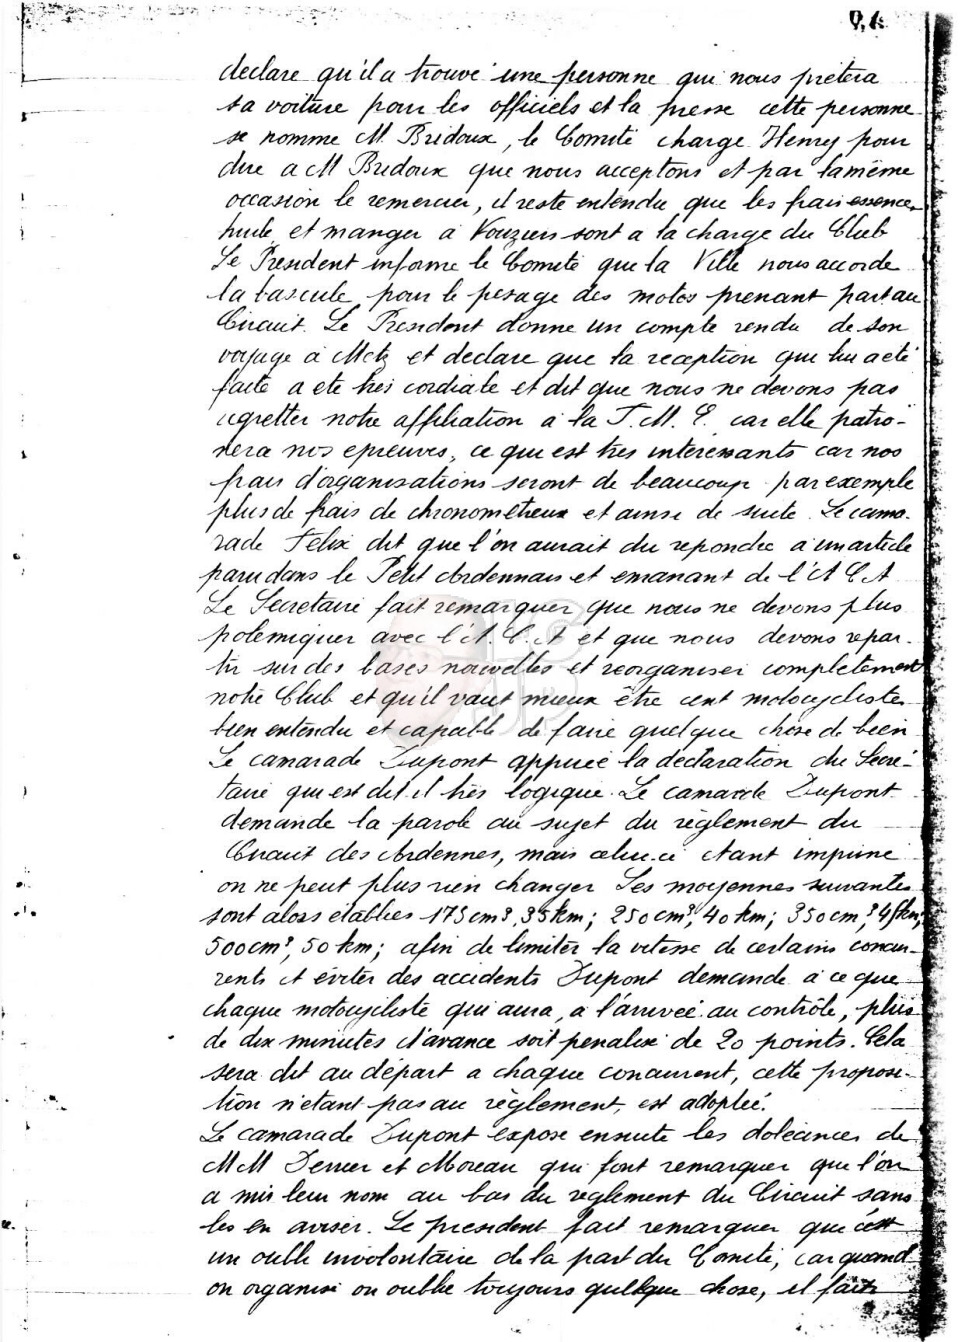 declare qu'il a trouvé une personne qui nous prêtera
sa voiture pour les officiels et la presse cette personne
se nomme M. Bridoux, le Comité charge Henry pour
dire a M Bridoux que nous acceptons et par la même
occasion le remercier, il reste entendu que les frais essence,
huile et manger à Vouziers sont a la charge du Club
Le President informe le Comité que la Ville nous accorde
la bascule pour le pesage des motos prenant part au
Circuit. Le President donne un compte rendu de son
voyage à Metz et declare que la reception que lui a été
faite a été très cordiale et dit que nous ne devons pas
regretter notre affiliation à la F. M. E. car elle patro-
nera nos epreuves, ce qui est très interessants car nos
frais d'organisations seront de beaucoup par exemple
plus de frais de chronometreur et ainsi de suite. Le cama-
rade Felix dit que l'on aurait du repondre a un article
paru dans le Petit Ardennais et emanant de l'A C A
Le Secretaire fait remarquer que nous ne devons plus
polemiquer avec l'A. C. A et que nous devons repar-
tir sur des bases nouvelles et reorganiser completement
notre Club et qu'il vaut mieux être cent motocycliste
bien entendu et capable de faire quelque chose de bien
Le camarade Dupont appuie la declaration du Secré-
taire qui est dit-il très logique. Le camarade Dupont
demande la parole au sujet du règlement du
Circuit des Ardennes, mais celui-ci étant imprimé
on ne peut plus rien changer Les moyennes suivantes
sont alors établies 175cm³, 35km; 250cm³, 40km; 350cm³, 45km;
500cm³, 50km; afin de limiter la vitesse de certains concur-
rents et éviter des accidents Dupont demande à ce que
chaque motocycliste qui aura, a l'arrivée au contrôle, plus
de dix minutes d'avance soit penalisé de 20 points. Cela
sera dit au départ a chaque concurrent, cette proposi-
tion n'étant pas au règlement, est adoptée.
Le camarade Dupont expose ensuite les doléances de
MM et Moreau qui font remarquer que l'on
a mis leur nom au bas du règlement du Circuit sans
les en aviser. Le president fait remarquer que c'est
un oubli involontaire de la part du Comité, car quand
on organise on oublie toujours quelque chose, il fait
LC
JP